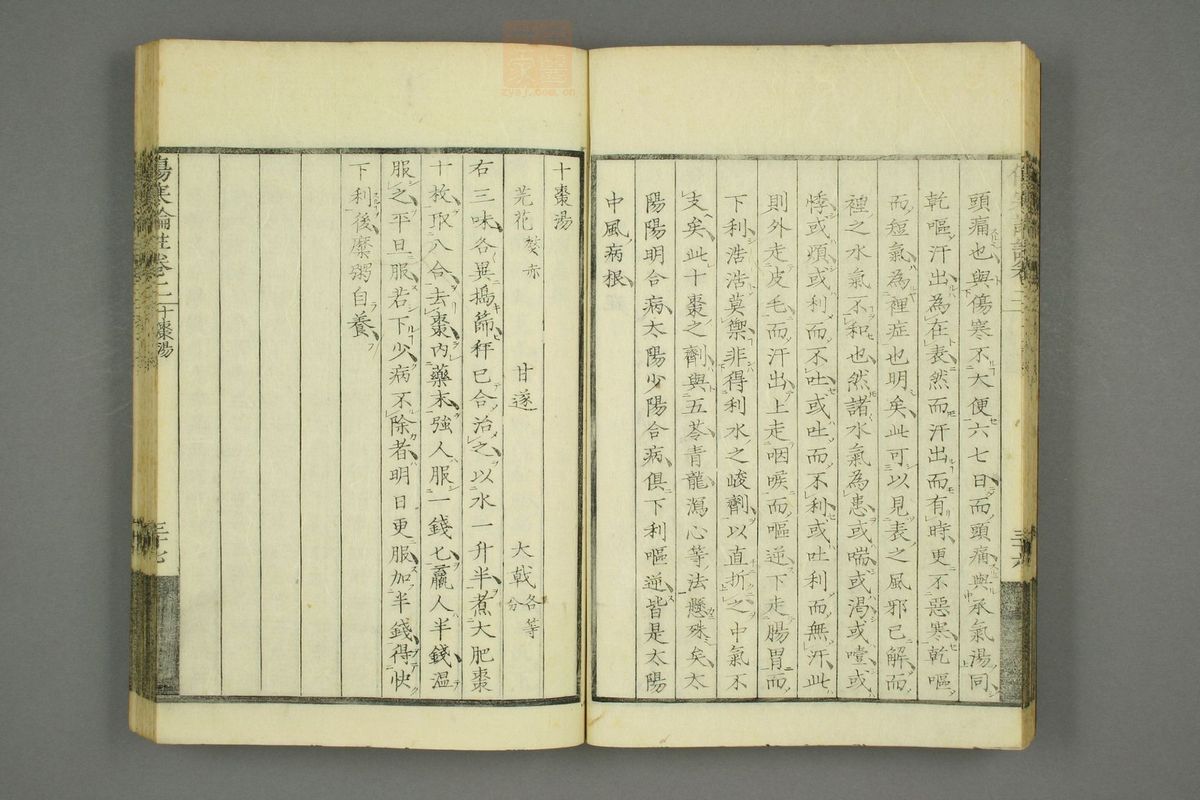 頭痛也與傷寒不大便六七日而頭痛與承氣湯同
乾嘔汗出為在表然而汗出而有時更不惡寒乾嘔
而短氣為裡症也明矣此可以見表之風邪已解而
裡之水氣不和也然諸水氣為患或喘或渴或噎或
悸或煩或利而不吐或吐而不利或吐利而無汗此
則外走皮毛而汗出上走咽喉而嘔逆下走腸胃而
下利浩浩莫禦非得利水之峻劑以直折之中氣不
支矣此十棗之劑與五苓青龍瀉心等法懸殊矣太
陽陽明合病太陽少陽合病俱下利嘔逆皆是太陽
中風病根
三十六
十棗湯
芫花 熬赤 甘遂 大戟 各等分
右三味各異搗篩秤已合治之以水一升半煮大肥棗
十枚取八合去棗內藥末強人服一錢匕羸人半錢溫
服之平旦服若下少病不除者明日更服加半錢得快
下利後糜粥自養
傷寒論註卷二 十棗湯
三十七
zysj.com.cn